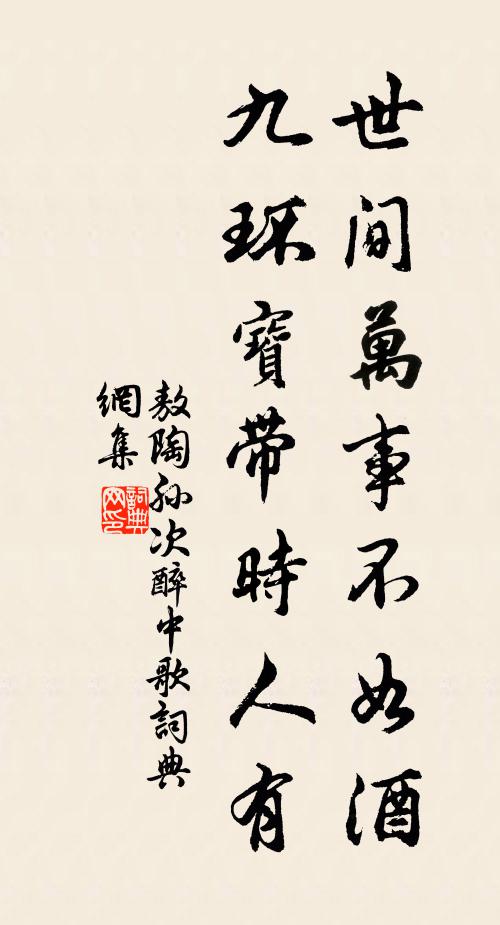 世间萬事不如酒
九环寶带時人有
敖陶孙次醉中歌詞典
網集
詞典
网印